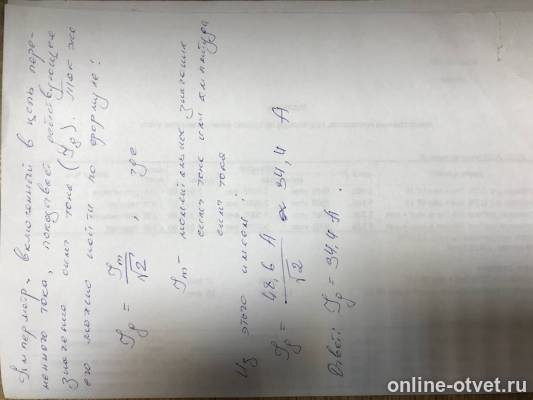 Амперметр, включенный в цепь пере-
менного тока, показывает действующее
значение силы тока (Iд). Так же
его можно найти по формуле:
Iд = Im/√2, где
Im – максимальное значение
силы тока или амплитуда
силы тока
Из этого имеем:
Iд = 48,6 А/√2 ≈ 34,4 А
Ответ: Iд = 34,4 А.
online-otvet.ru